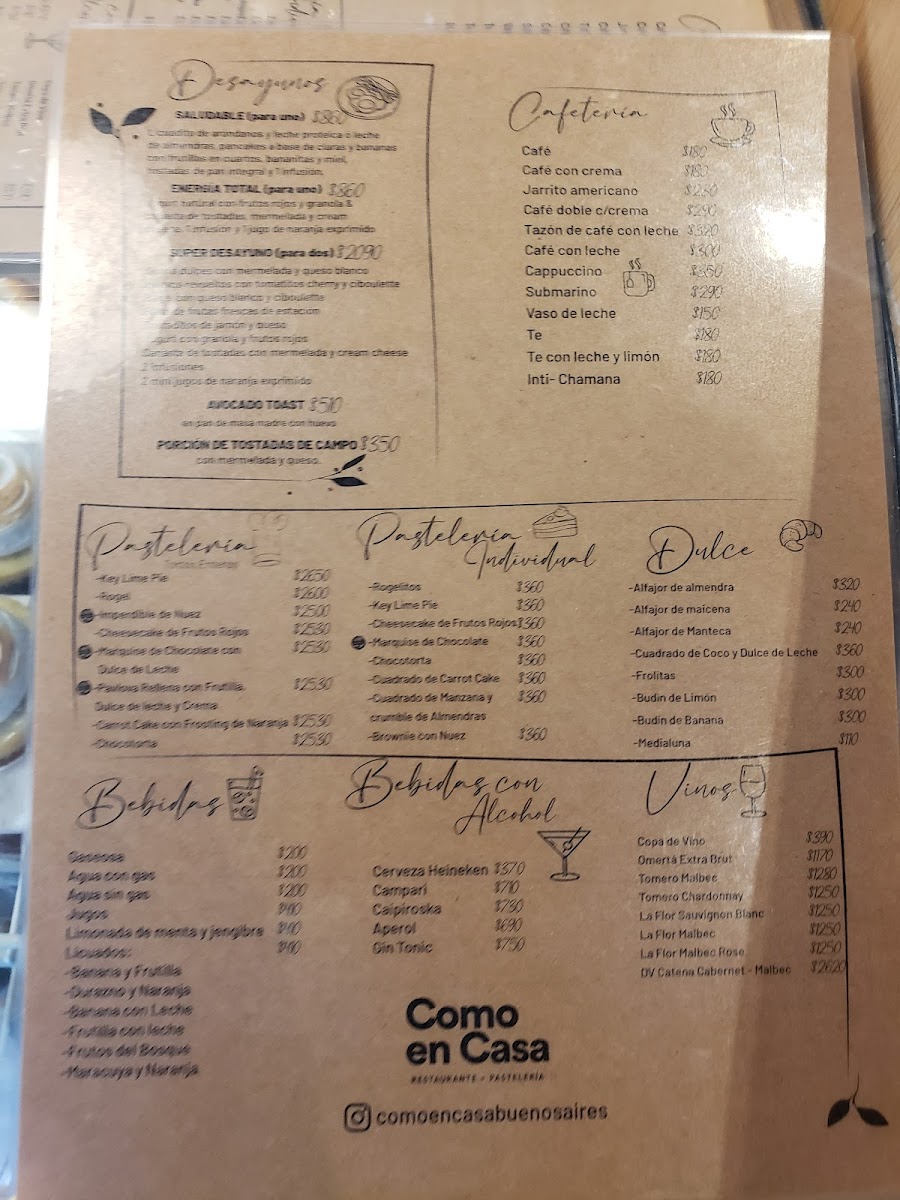 Desayunos
SALUDABLE (para uno) $860
Licuadito de arándanos y leche proteica o leche
de almendras, pancakes a base de claras y bananas
con frutillas en cuartos, bananitas y miel,
tostadas de pan integral y 1 infusión.
ENERGÍA TOTAL (para uno) $860
natural con frutos rojos y granola &
de tostadas, mermelada y cream
1 infusión y 1 jugo de naranja exprimido
SUPER DESAYUNO (para dos) $2090
dulces con mermelada y queso blanco
revueltos con tomatitos cherry y ciboulette
con queso blanco y ciboulette
de frutas frescas de estación
de jamón y queso
con granola y frutos rojos
Canasta de tostadas con mermelada y cream cheese
2 infusiones
2 mini jugos de naranja exprimido
AVOCADO TOAST $510
en pan de masa madre con huevo
PORCIÓN DE TOSTADAS DE CAMPO $350
con mermelada y queso.
Cafetería
Café $180
Café con crema $180
Jarrito americano $230
Café doble c/crema $290
Tazón de café con leche $320
Café con leche $300
Cappuccino $350
Submarino $290
Vaso de leche $150
Te $180
Te con leche y limón $180
Inti- Chamana $180
Pastelería
Tortas Enteras
-Key Lime Pie $2650
-Rogel $2600
-Imperdible de Nuez $2500
-Cheesecake de Frutos Rojos $2530
-Marquise de Chocolate con $2530
Dulce de Leche
-Pavlova Rellena con Frutilla, $2530
Dulce de leche y Crema
-Carrot Cake con Frosting de Naranja $2530
-Chocotorta $2530
Pastelería
Individual
-Rogelitos $360
-Key Lime Pie $360
-Cheesecake de Frutos Rojos $360
-Marquise de Chocolate $360
-Chocotorta $360
-Cuadrado de Carrot Cake $360
-Cuadrado de Manzana y $360
crumble de Almendras
-Brownie con Nuez $360
Dulce
-Alfajor de almendra $320
-Alfajor de maicena $240
-Alfajor de Manteca $240
-Cuadrado de Coco y Dulce de Leche $360
-Frolitas $300
-Budin de Limón $300
-Budin de Banana $300
-Medialuna $110
Bebidas
Gaseosa $200
Agua con gas $200
Agua sin gas $200
Jugos
Limonada de menta y jengibre
Licuados:
-Banana y Frutilla
-Durazno y Naranja
-Banana con Leche
-Frutilla con leche
-Frutos del Bosque
-Maracuya y Naranja
Bebidas con
Alcohol
Cerveza Heineken $370
Campari $710
Caipiroska $730
Aperol $690
Gin Tonic $750
Vinos
Copa de Vino $390
Omertá Extra Brut $1170
Tomero Malbec $1280
Tomero Chardonnay $1250
La Flor Sauvignon Blanc $1250
La Flor Malbec $1250
La Flor Malbec Rose $1250
DV Catena Cabernet - Malbec $2620
Como
en Casa
RESTAURANTE - PASTELERÍA
comoencasabuenosaires